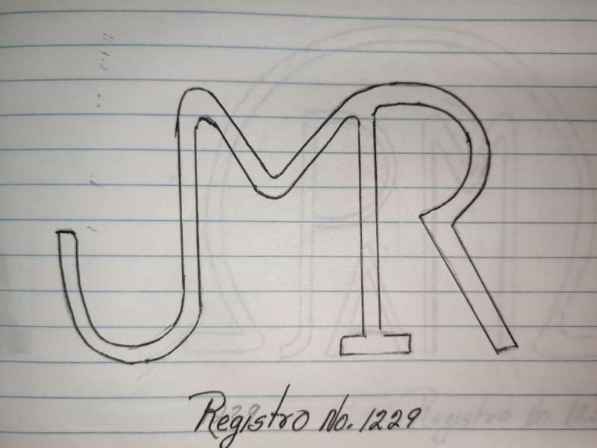 JMR
Registro No. 1229